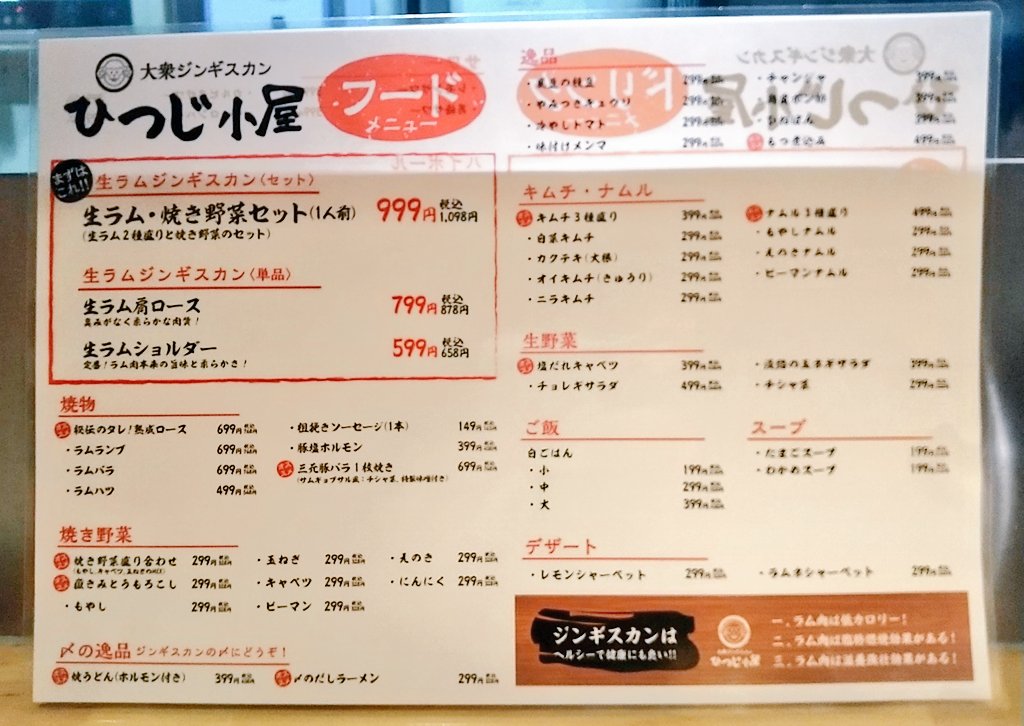 大衆ジンギスカン
ひつじ小屋
フード
メニュー
まずは
これ!!
生ラムジンギスカン〈セット〉
生ラム・焼き野菜セット(1人前) 999円 税込1,098円
(生ラム2種盛りと焼き野菜のセット)
生ラムジンギスカン〈単品〉
生ラム肩ロース 799円 税込878円
臭みがなく柔らかな肉質!
生ラムショルダー 599円 税込658円
定番!ラム肉本来の旨味と柔らかさ!
焼物
秘伝のタレ!熟成ロース 699円
・ラムランプ 699円
・ラムバラ 699円
・ラムハツ 499円
・粗挽きソーセージ(1本) 149円
・豚塩ホルモン 399円
三元豚バラ1枚焼き 699円
(サムギョプサル風:チシャ菜、特製味噌付き)
焼き野菜
焼き野菜盛り合わせ 299円
(もやし、キャベツ、玉ねぎのMIX)
直きみとうもろこし 299円
・もやし 299円
・玉ねぎ 299円
・キャベツ 299円
・ピーマン 299円
・えのき 299円
・にんにく 299円
〆の逸品 ジンギスカンの〆にどうぞ!
焼うどん(ホルモン付き) 399円
〆のだしラーメン 299円
逸品
・やみつきキュウリ 299円
・冷やしトマト 299円
・味付けメンマ 299円
・チャンジャ 399円
もつ煮込み 499円
キムチ・ナムル
キムチ3種盛り 399円
・白菜キムチ 299円
・カクテキ(大根) 299円
・オイキムチ(きゅうり) 299円
・ニラキムチ 299円
ナムル3種盛り 499円
・もやしナムル 299円
・えのきナムル 299円
・ピーマンナムル 299円
生野菜
塩だれキャベツ 399円
・チョレギサラダ 499円
・淡路の玉ネギサラダ 399円
・チシャ菜 299円
ご飯
白ごはん
・小 199円
・中 299円
・大 399円
スープ
・たまごスープ 199円
・わかめスープ 199円
デザート
・レモンシャーベット 299円
・ラムネシャーベット 299円
ジンギスカンは
ヘルシーで健康にも良い!!
ひつじ小屋
一、ラム肉は低カロリー!
二、ラム肉は脂肪燃焼効果がある!
三、ラム肉は滋養強壮効果がある!